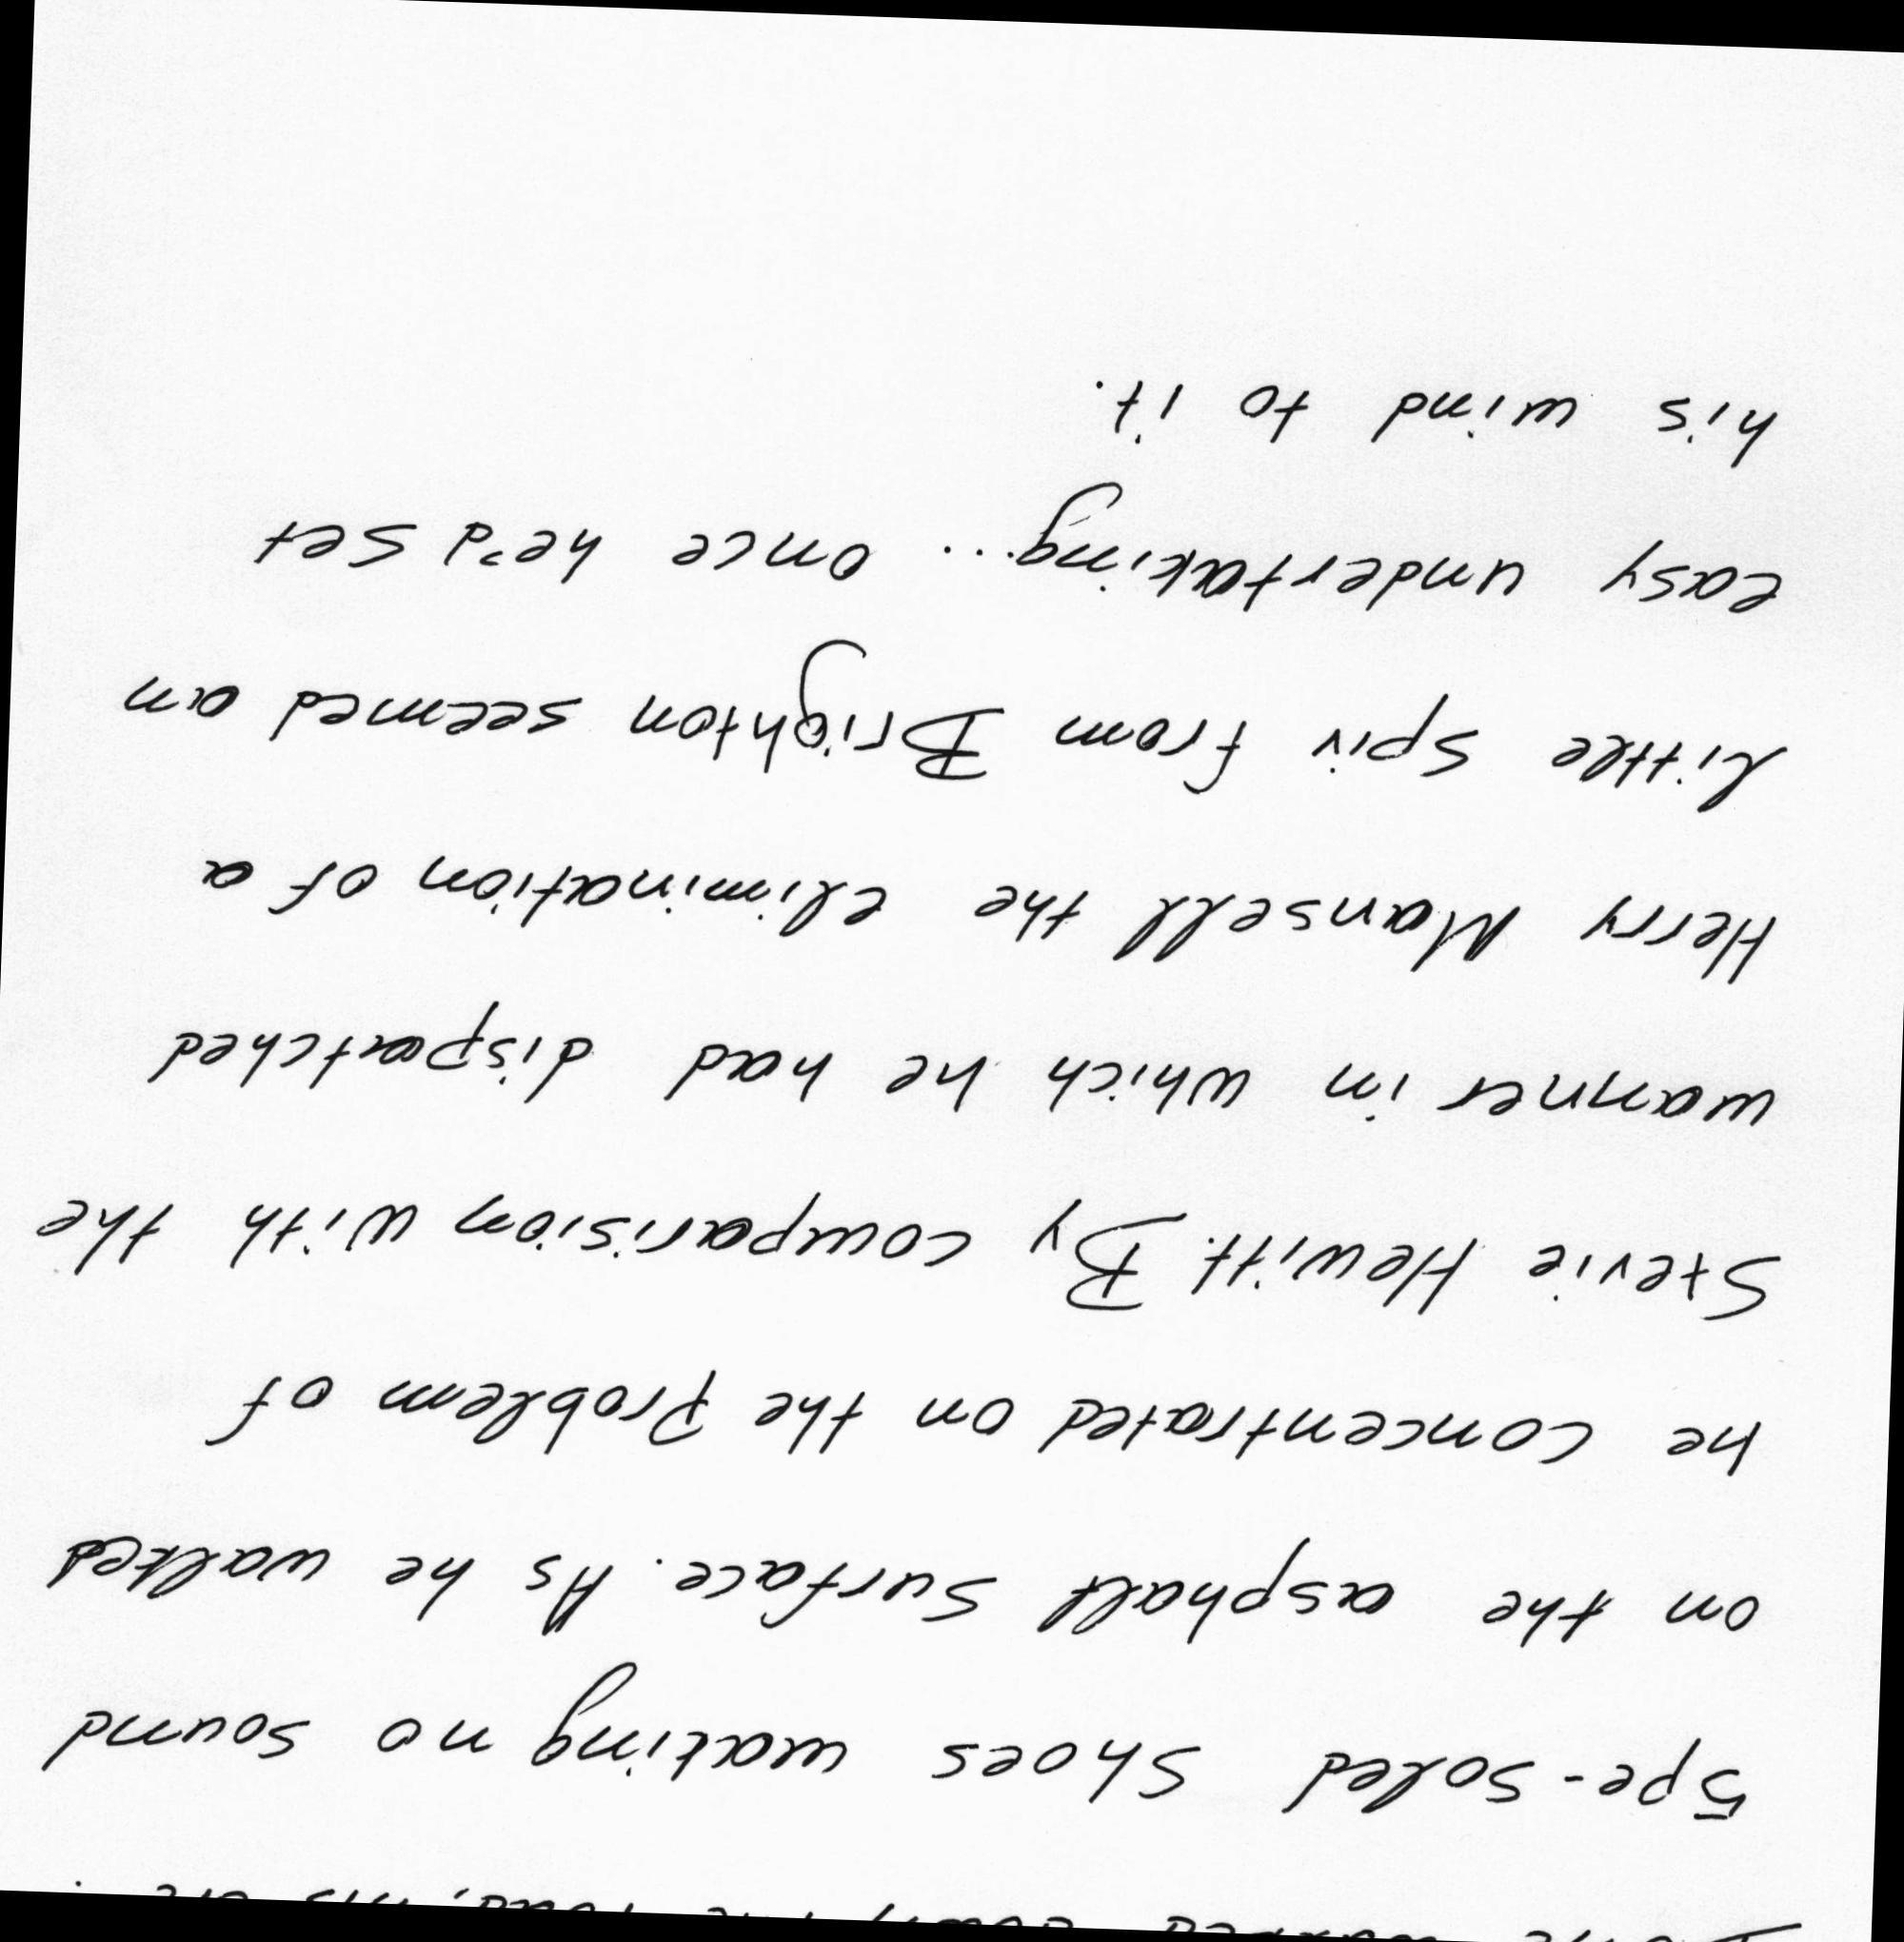 5pe-soled shoes making no sound
on the asphalt surface. As he walked
he concentrated on the problem of
Stevie Hewitt. By comparision with the
manner in which he had dispatched
Herry Mansell the elimination of a
little spiv from Brighton seemed an
easy undertaking... once he'd set
his mind to it.